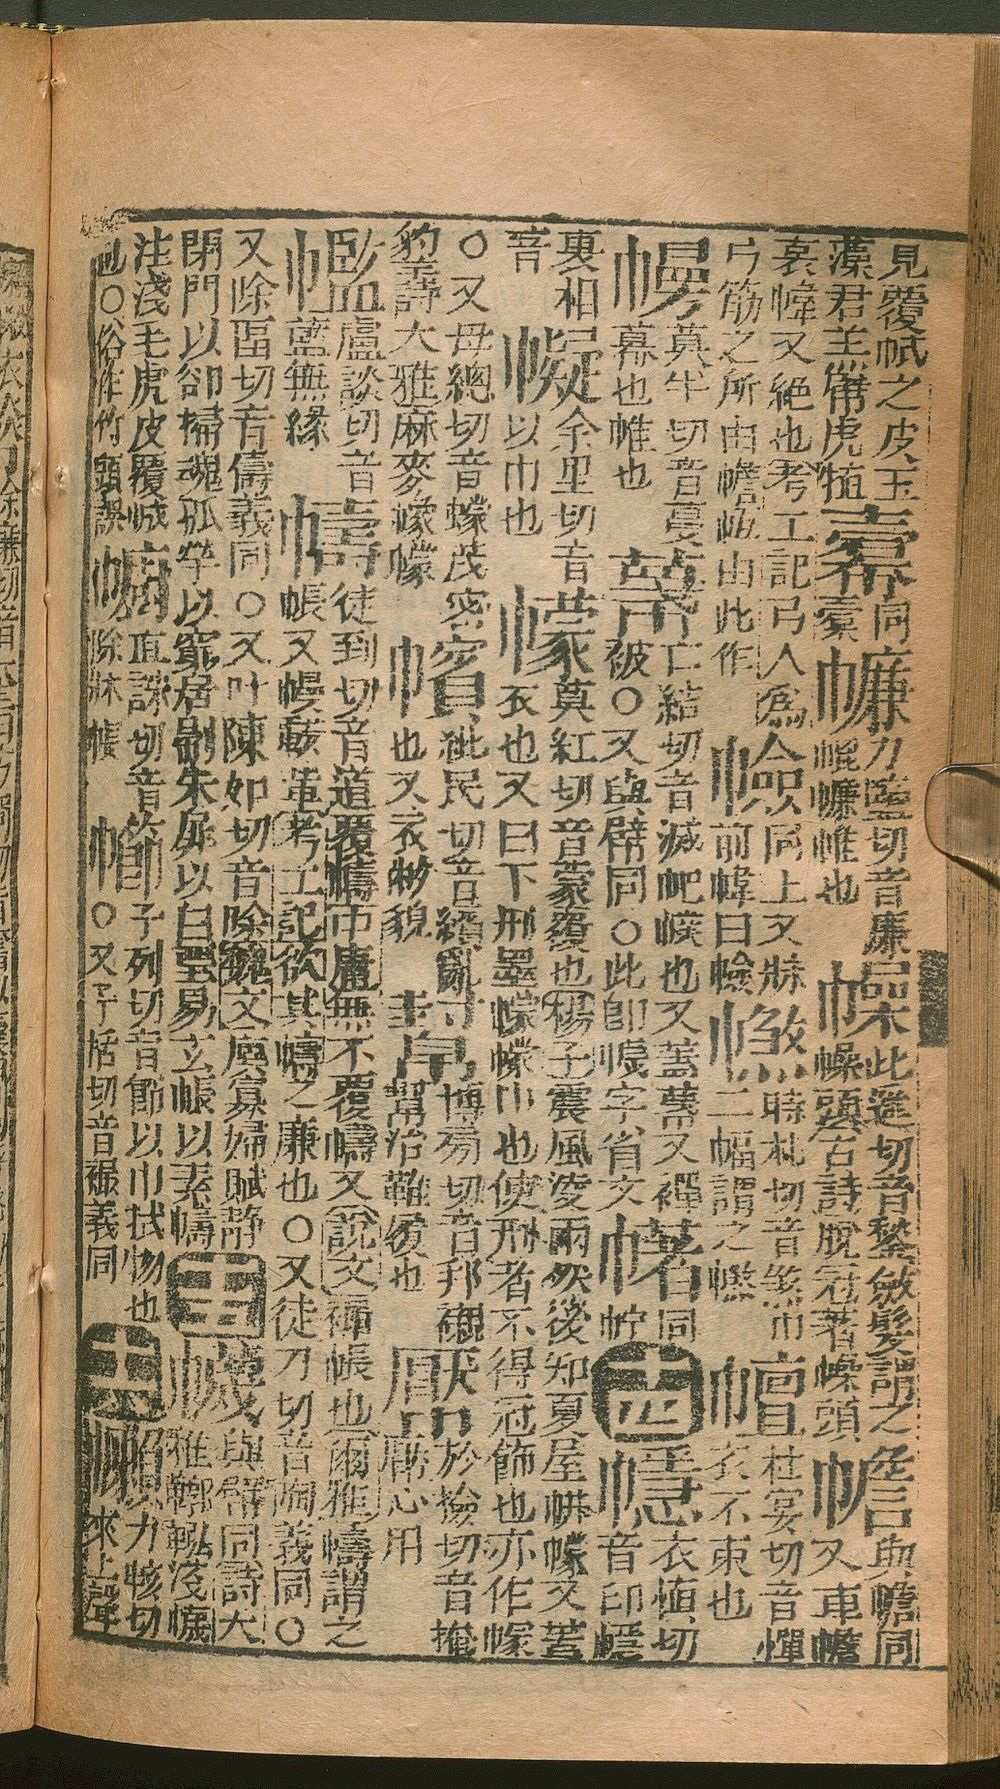 見覆幭之皮玉
藻君羔幦虎犆
同
㡘
力鹽切音廉
幌㡘帷也
幧
此遙切音鍫斂髮謂之
幧頭古詩脫冠著幧頭
幨
與襜同
又車幨
裳幃又絶也考工記弓人爲
弓筋之所由幨恆由此作
㡨
同上又牀
前幃曰㡨
時札切音煞巾
二幅謂之
杜宴切音憚
衣不束也
幔
莫半切音曼
幕也帷也
亡結切音滅帊幞也又蓋幭又襌
被○又與幦同○此卽幭字省文
同
十四
衣愼切
音印
裏相
著
余里切音
以巾也
幪
莫紅切音蒙覆也楊子震風凌雨然後知夏屋帡幪又蓋
衣也又曰下刑墨幪幪巾也使刑者不得冠飾也亦作㡚
○又母總切音蠓茂密
貌詩大雅麻麥幪幪
㡦
紕民切音繽亂
也又衣敝貌
幫
博旁切音邦
幫治鞵履也
於撿切音掩
㡮
盧談切音
藍無緣
幬
徒到切音道覆幬中庸無不覆幬又說文襌帳也爾雅幬謂之
帳又幔轂革考工記欲其幬之廉也○又徒刀切音陶義同○
又除留切音儔義同○又叶陳如切音除魏文丁廙寡婦賦靜
閉門以卻掃魂孤煢以窮居刷朱扉以白堊易玄帳以素幬
十五
幭
與幦同詩大
雅鞹鞃淺幭
注淺毛虎皮覆軾
也○俗作
誤
直誅切音
除牀帳
子列切音節以巾拭物也
○又子括切音
義同
力駭切
來上聲